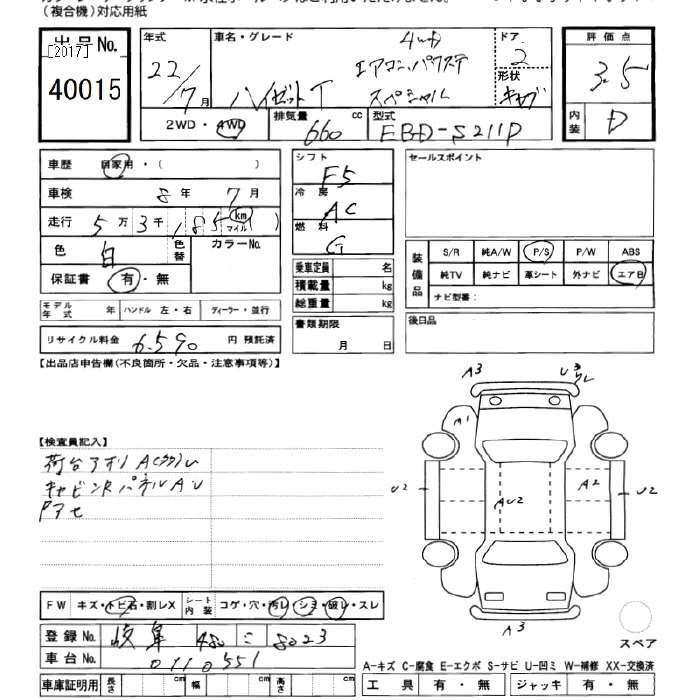 （複合機）対応用紙
出品No.
[2017]
40015
年式
22/7月
車名・グレード
ハイゼットT
4WD
エアコン、パワステ
スペシャル
ドア
2
形状
キャブ
2WD・4WD
排気量
660
cc
型式
EBD-S211P
評価点
3.5
内装
D
車歴
自家用・（ ）
車検
8年 7月
走行
5万3千185 km マイル ( )
色
白
色替
カラーNo.
保証書
有・無
シフト
F5
冷房
AC
燃料
G
乗車定員 名
積載量 kg
総重量 kg
セールスポイント
装備品
S/R 純A/W P/S P/W ABS
純TV 純ナビ 革シート 外ナビ エアB
ナビ型番：
モデル年式 年
ハンドル 左・右
ディーラー・並行
リサイクル料金 6,590 円 預託済
書類期限
月 日
後日品
【出品店申告欄(不良箇所・欠品・注意事項等)】
【検査員記入】
荷台アオリ
キャビンRパネルAU
A3
A1
U2
AU2
A2
U2
A3
FW キズ・トビ石・割レX
シート内装 コゲ・穴・汚レ・シミ・破レ・スレ
登録No. 岐阜 480 こ 8023
車台No. 0110551
車庫証明用 長さ cm 幅 cm 高さ cm
スペア
A-キズ C-腐食 E-エクボ S-サビ U-凹ミ W-補修 XX-交換済
工具 有・無 ジャッキ 有・無